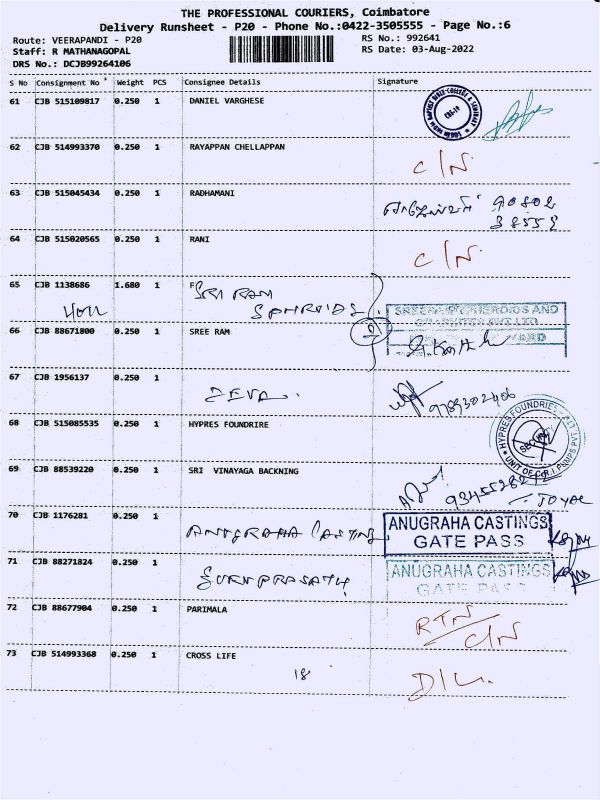 THE PROFESSIONAL COURIERS, Coimbatore
Delivery Runsheet - P20 - Phone No.:0422-3505555 - Page No.:6
Route: VEERAPANDI - P20 RS No.: 992641
Staff: R MATHANAGOPAL RS Date: 03-Aug-2022
DRS No.: DCJB99264106
S No Consignment No Weight PCS Consignee Details Signature
61 CJB 515109817 0.250 1 DANIEL VARGHESE
62 CJB 514993370 0.250 1 RAYAPPAN CHELLAPPAN C/N.
63 CJB 515045434 0.250 1 RADHAMANI 90802
38552
64 CJB 515020565 0.250 1 RANI C/N.
65 CJB 1138686 1.680 1 SRI RAM
SREERAM SPHEROIDS AND
66 CJB 88671800 0.250 1 SREE RAM
67 CJB 1956137 0.250 1 DEVA. 9789302406
68 CJB 515085535 0.250 1 HYPRES FOUNDRIRE HYPRES FOUNDRIES
SECURITY
69 CJB 88539220 0.250 1 SRI VINAYAGA BACKNING
70 CJB 1176281 0.250 1 ANUGRAHA CASTING ANUGRAHA CASTINGS
GATE PASS
71 CJB 88271824 0.250 1 GURUPRASATH ANUGRAHA CASTINGS
GATE PASS
72 CJB 88677904 0.250 1 PARIMALA RTN
C/N
73 CJB 514993368 0.250 1 CROSS LIFE D/L.
18